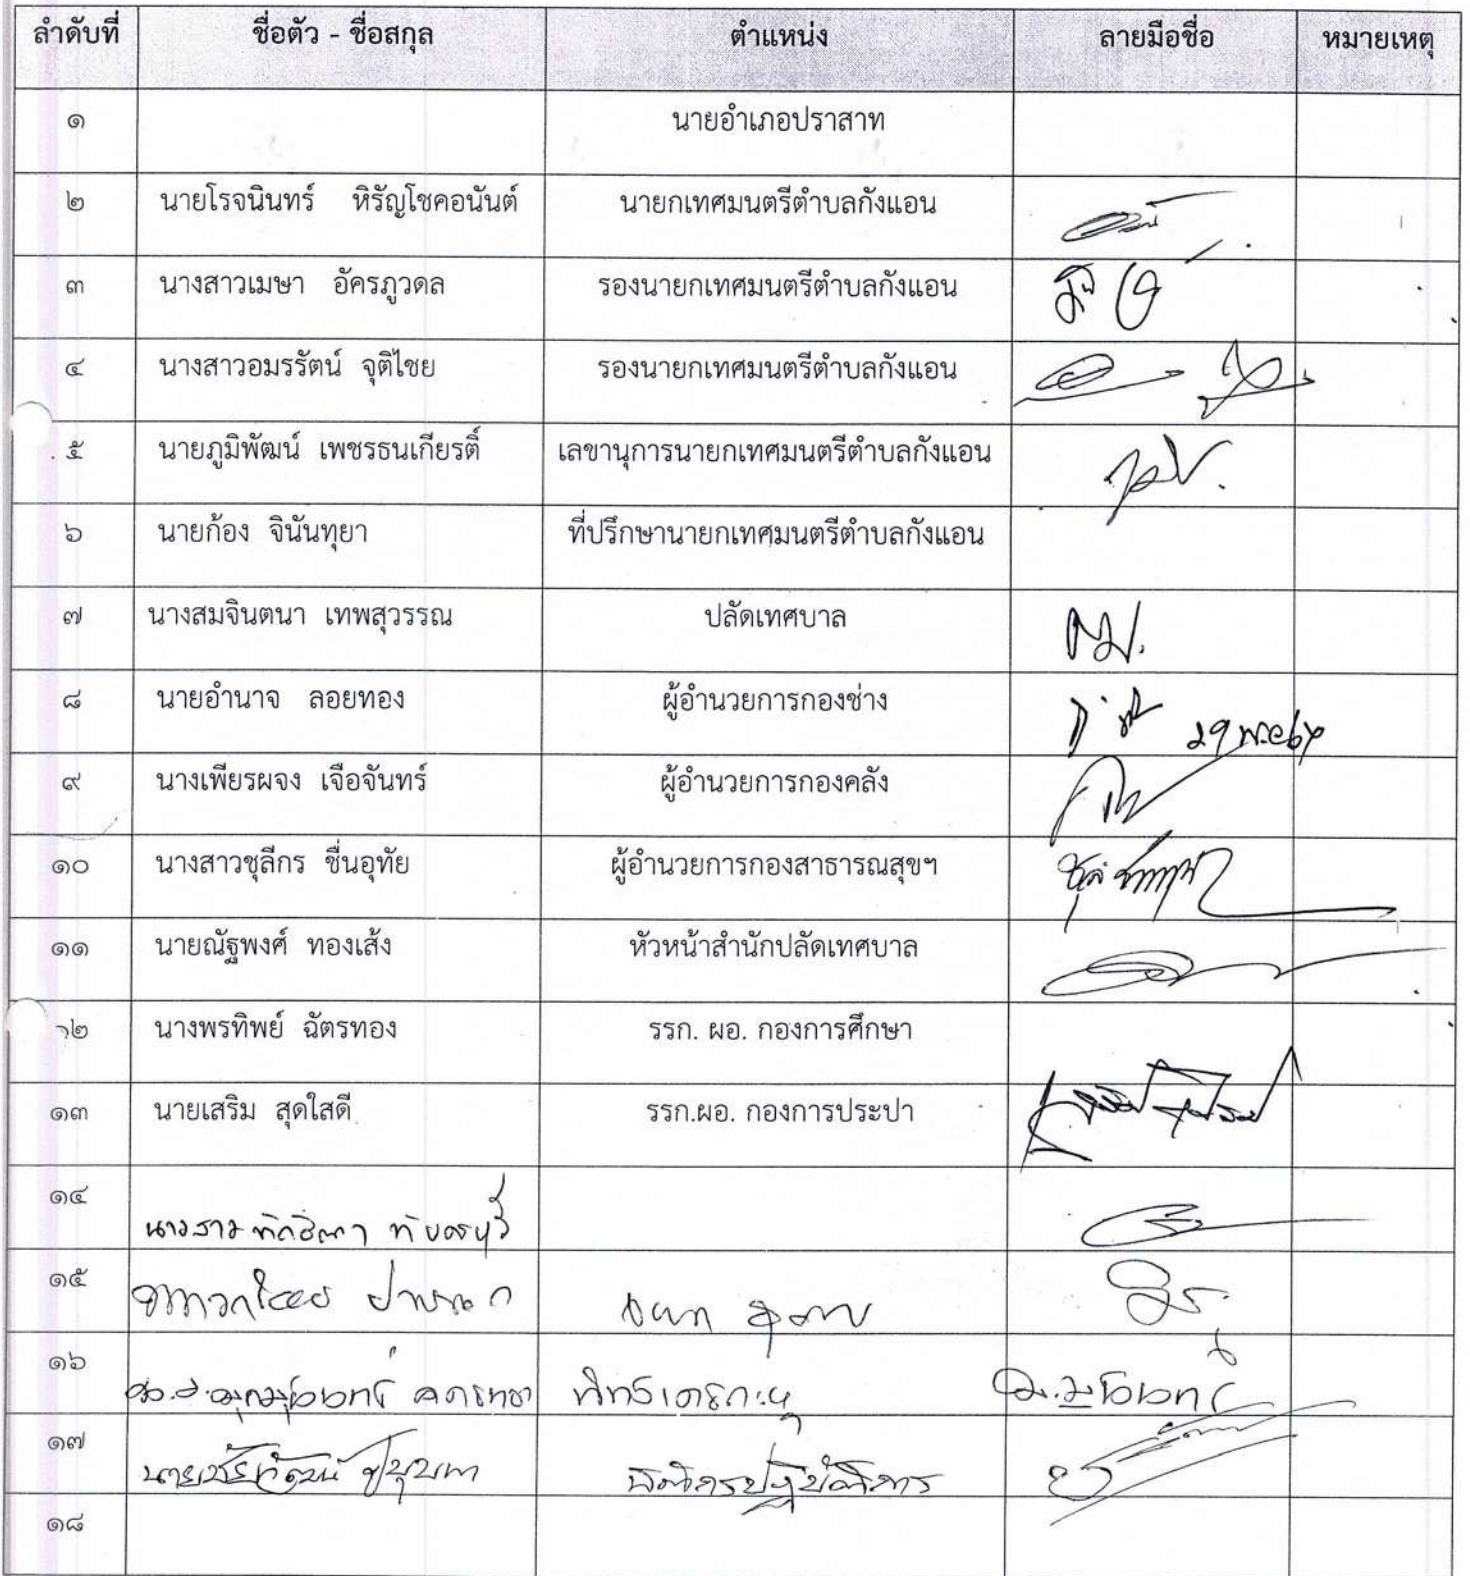 ลำดับที่ ชื่อตัว - ชื่อสกุล ตำแหน่ง ลายมือชื่อ หมายเหตุ
๑ นายอำเภอปราสาท
๒ นายโรจนินทร์ หิรัญโชคอนันต์ นายกเทศมนตรีตำบลกังแอน
๓ นางสาวเมษา อัครภูวดล รองนายกเทศมนตรีตำบลกังแอน
๔ นางสาวอมรรัตน์ จุติไชย รองนายกเทศมนตรีตำบลกังแอน
๕ นายภูมิพัฒน์ เพชรธนเกียรติ์ เลขานุการนายกเทศมนตรีตำบลกังแอน
๖ นายก้อง จินันทุยา ที่ปรึกษานายกเทศมนตรีตำบลกังแอน
๗ นางสมจินตนา เทพสุวรรณ ปลัดเทศบาล
๘ นายอำนาจ ลอยทอง ผู้อำนวยการกองช่าง
๙ นางเพียรผจง เจือจันทร์ ผู้อำนวยการกองคลัง
๑๐ นางสาวชุลีกร ชื่นอุทัย ผู้อำนวยการกองสาธารณสุขฯ
๑๑ นายณัฐพงศ์ ทองเส้ง หัวหน้าสำนักปลัดเทศบาล
๑๒ นางพรทิพย์ ฉัตรทอง รรก. ผอ. กองการศึกษา
๑๓ นายเสริม สุดใสดี รรก.ผอ. กองการประปา
๑๔ นางสาว
๑๕
๑๖
๑๗ ปฏิบัติการ
๑๘